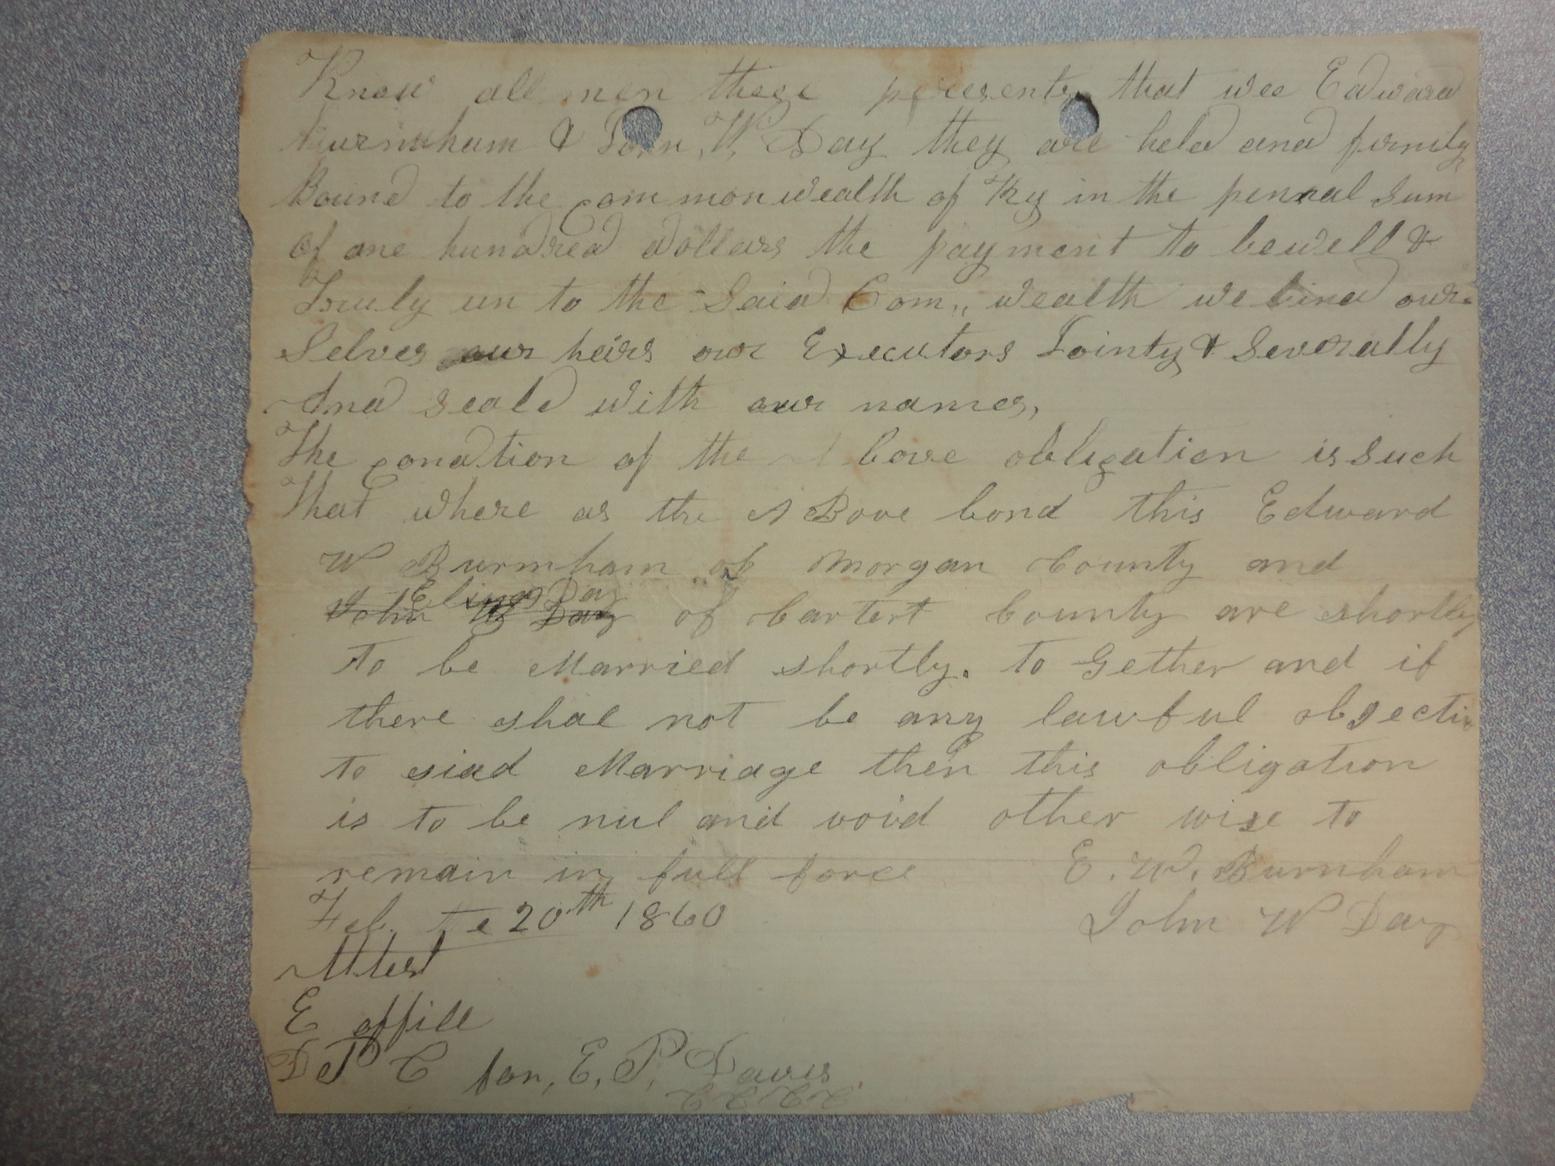 Know all men these presents that wee Edward
Burnham & John W. Day they are held and firmly
Bound to the commonwealth of Ky in the pennal Sum
Of one hundred dollars the payment to bewell &
Truly un to the Said Com,, wealth we bind our=
Selves our heirs our Executors Jointy & Severally
And Seald with our names,
The condtion of the A bove obligation is Such
That where as the A Bove bond this Edward
W Burnham of Morgan County and
Eliner Day
John W Day of Cartert County are shortly
To be Married shortly. to Gether and if
there shal not be any lawful objectin
to siad Marriage then this obligation
is to be nul and void other wise to
remain in full force E. W. Burnham
Feb. te 20th 1860 John W Day
Attest
E offill
De P C for, E. P. Davis
C C C C